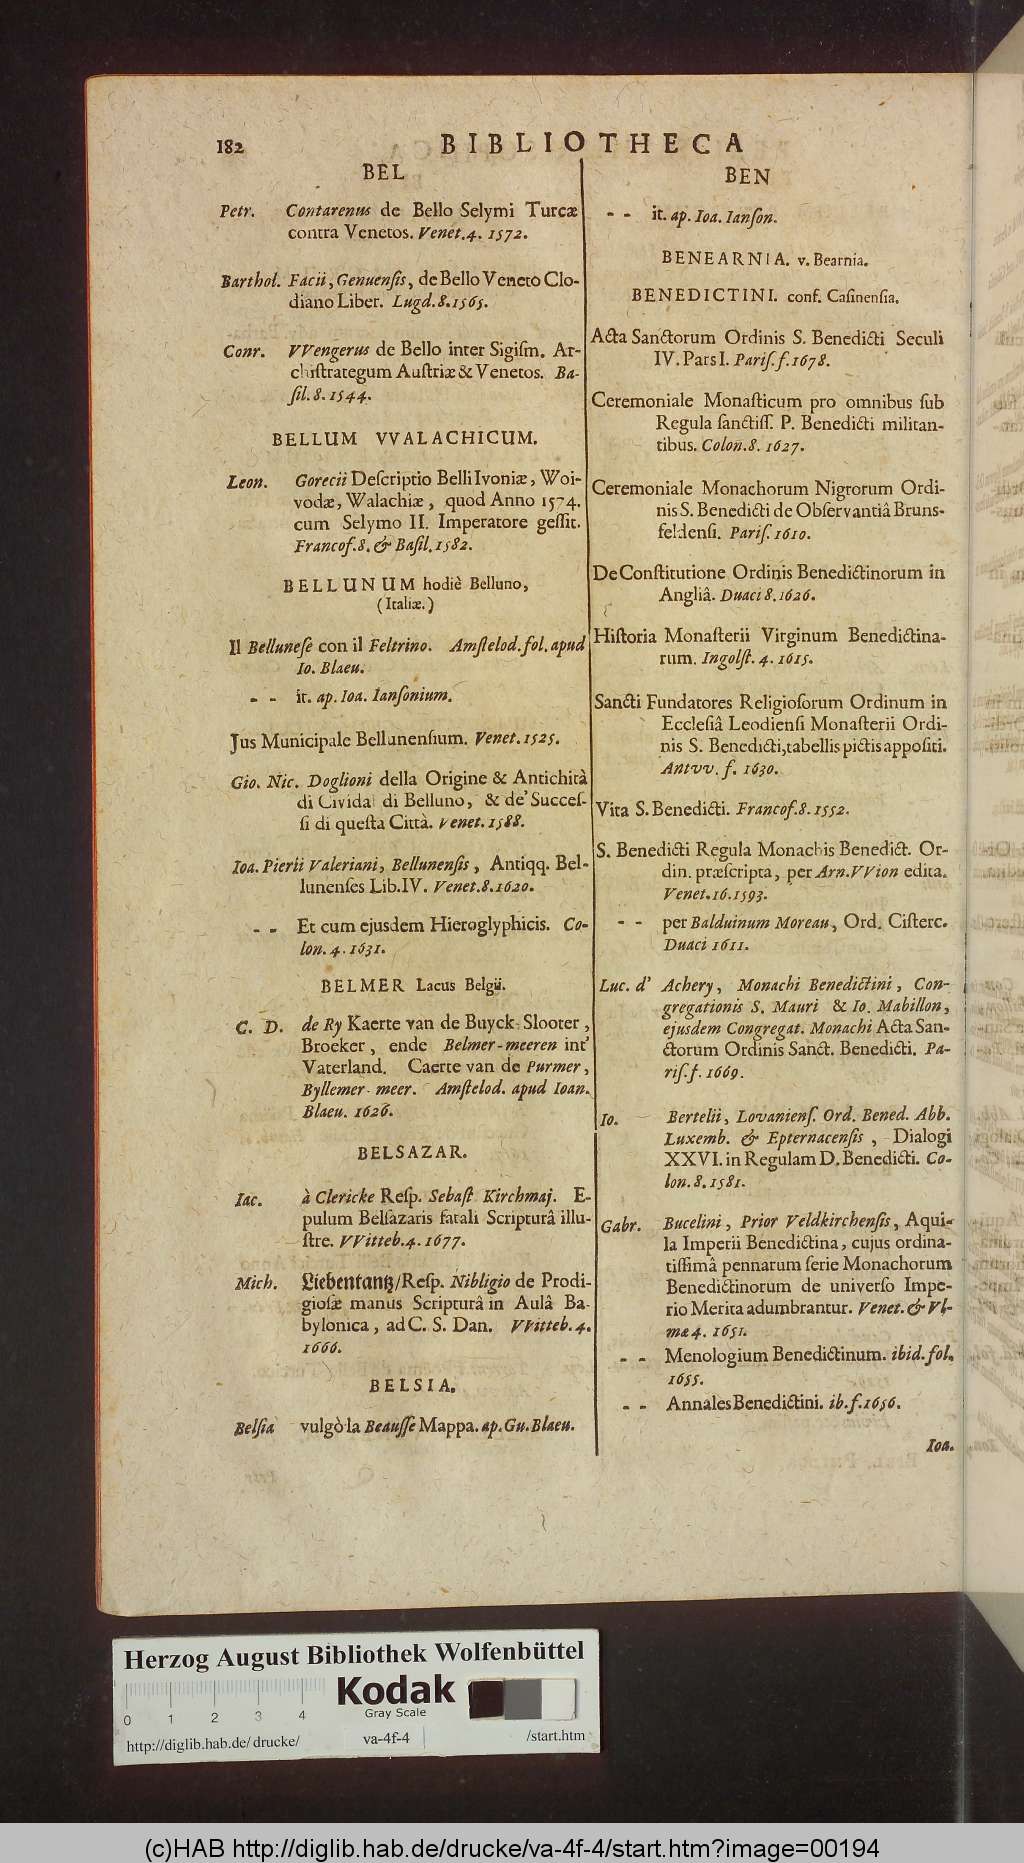 182
BIBLIOTHECA
BEL
Petr. Contarenus de Bello Selymi Turcæ
contra Venetos. Venet. 4. 1572.
Barthol. Facii, Genuenſis, de Bello Veneto Clo-
diano Liber. Lugd. 8. 1565.
Conr. VVengerus de Bello inter Sigiſm. Ar-
chiſtrategum Auſtriæ & Venetos. Ba-
ſil. 8. 1544.
BELLUM VVALACHICUM.
Leon. Gorecii Deſcriptio Belli Ivoniæ, Woi-
vodæ, Walachiæ, quod Anno 1574.
cum Selymo II. Imperatore geſſit.
Francof. 8. & Baſil. 1582.
BELLUNUM hodiè Belluno,
(Italiæ.)
Il Belluneſe con il Feltrino. Amſtelod. fol. apud
Io. Blaeu.
- - it. ap. Ioa. Ianſonium.
Jus Municipale Bellunenſium. Venet. 1525.
Gio. Nic. Doglioni della Origine & Antichità
di Cividal di Belluno, & de' Succeſ-
ſi di queſta Città. Venet. 1588.
Ioa. Pierii Valeriani, Bellunenſis, Antiqq. Bel-
lunenſes Lib. IV. Venet. 8. 1620.
- - Et cum ejusdem Hieroglyphicis. Co-
lon. 4. 1631.
BELMER Lacus Belgii.
C. D. de Ry Kaerte van de Buyck-Slooter,
Broeker, ende Belmer-meeren int'
Vaterland. Caerte van de Purmer,
Byllemer-meer. Amſtelod. apud Ioan.
Blaeu. 1626.
BELSAZAR.
Iac. à Clericke Reſp. Sebaſt Kirchmaj. E-
pulum Belſazaris fatali Scripturâ illu-
ſtre. VVitteb. 4. 1677.
Mich. Liebentantz/Reſp. Nibligio de Prodi-
gioſæ manus Scripturâ in Aulâ Ba-
bylonica, ad C. S. Dan. VVitteb. 4.
1666.
BELSIA.
Belſia vulgò la Beauſſe Mappa. ap. Gu. Blaeu.
BEN
- - it. ap. Ioa. Ianſon.
BENEARNIA. v. Bearnia.
BENEDICTINI. conf. Caſinenſia.
Acta Sanctorum Ordinis S. Benedicti Seculi
IV. Pars I. Pariſ. f. 1678.
Ceremoniale Monaſticum pro omnibus ſub
Regula ſanctiſſ. P. Benedicti militan-
tibus. Colon. 8. 1627.
Ceremoniale Monachorum Nigrorum Ordi-
nis S. Benedicti de Obſervantiâ Bruns-
feldenſi. Pariſ. 1610.
De Conſtitutione Ordinis Benedictinorum in
Angliâ. Duaci 8. 1626.
Hiſtoria Monaſterii Virginum Benedictina-
rum. Ingolſt. 4. 1615.
Sancti Fundatores Religioſorum Ordinum in
Eccleſiâ Leodienſi Monaſterii Ordi-
nis S. Benedicti, tabellis pictis appoſiti.
Antvv. f. 1630.
Vita S. Benedicti. Francof. 8. 1552.
S. Benedicti Regula Monachis Benedict. Or-
din. præſcripta, per Arn. VVion edita.
Venet. 16. 1593.
- - per Balduinum Moreau, Ord. Ciſterc.
Duaci 1611.
Luc. d' Achery, Monachi Benedictini, Con-
gregationis S. Mauri & Io. Mabillon,
ejusdem Congregat. Monachi Acta San-
ctorum Ordinis Sanct. Benedicti. Pa-
riſ. f. 1669.
Io. Bertelii, Lovanienſ. Ord. Bened. Abb.
Luxemb. & Epternacenſis, Dialogi
XXVI. in Regulam D. Benedicti. Co-
lon. 8. 1581.
Gabr. Bucelini, Prior Veldkirchenſis, Aqui-
la Imperii Benedictina, cujus ordina-
tiſſimâ pennarum ſerie Monachorum
Benedictinorum de univerſo Impe-
rio Merita adumbrantur. Venet. & Vl-
mæ 4. 1651.
- - Menologium Benedictinum. ibid. fol.
1655.
- - Annales Benedictini. ib. f. 1656.
Ioa.
Herzog August Bibliothek Wolfenbüttel
Kodak
Gray Scale
0 1 2 3 4
http://diglib.hab.de/drucke/ va-4f-4 /start.htm
(c)HAB http://diglib.hab.de/drucke/va-4f-4/start.htm?image=00194